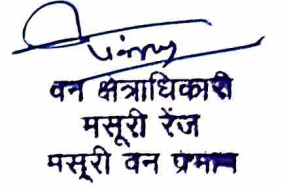 वन क्षेत्राधिकारी
मसूरी रेंज
मसूरी वन प्रभाग